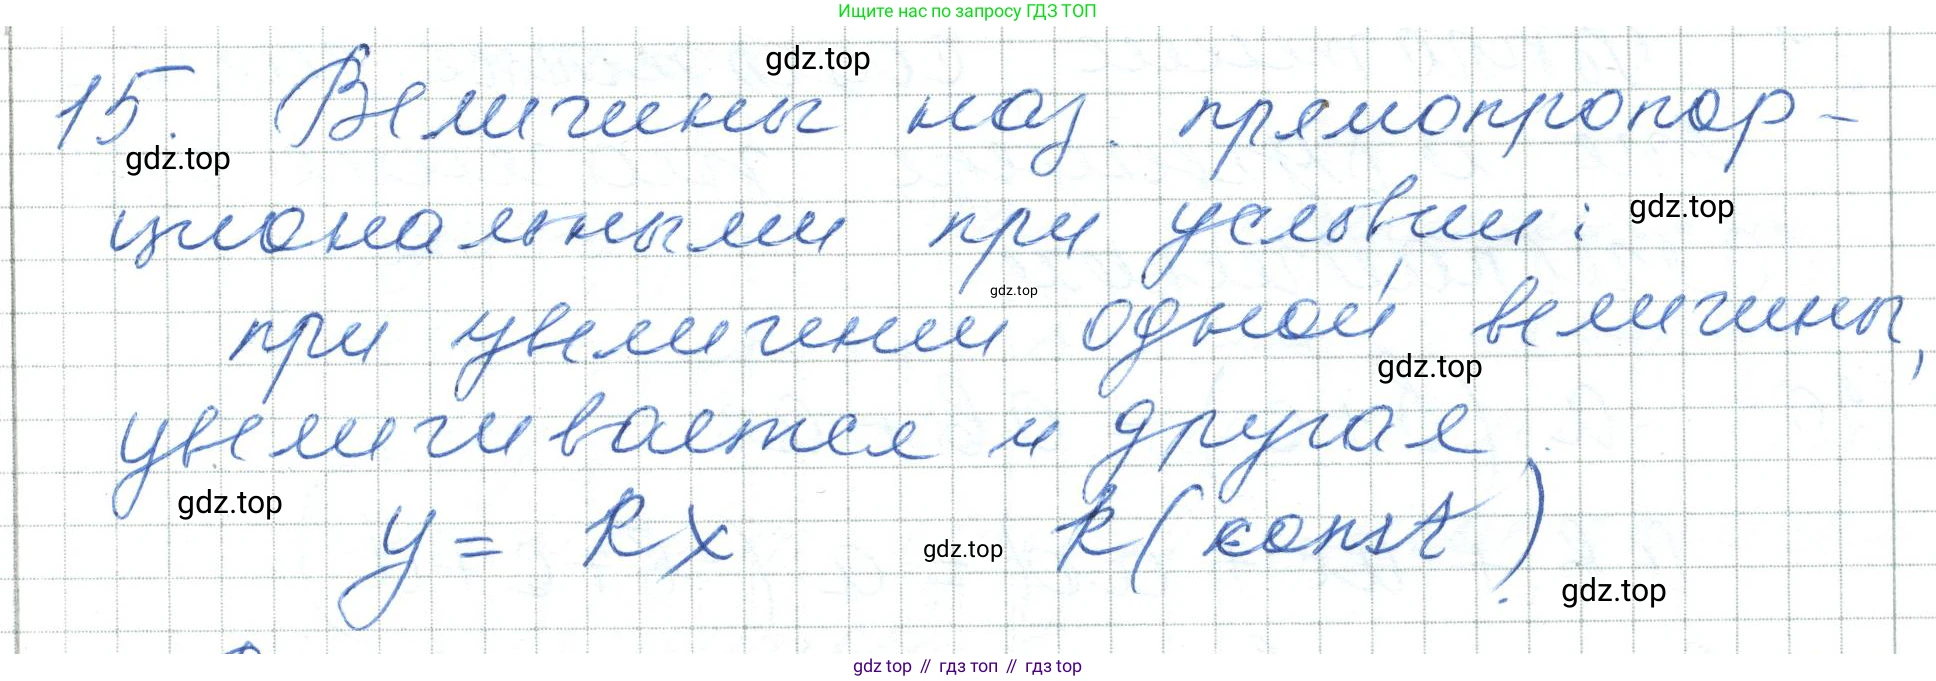 Ищите нас по запросу ГДЗ ТОП
gdz.top
15. Величины наз. прямопропор-
gdz.top
циональными при условии:
gdz.top
при увеличении одной величины,
gdz.top
gdz.top
увеличивается и другая
gdz.top
y = kx k (const).
gdz.top
gdz.top
gdz top // гдз топ // гдз top